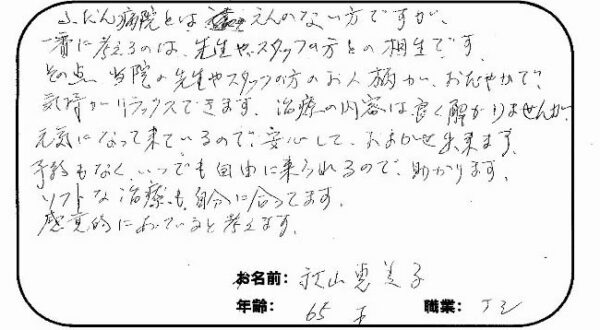 ふだん病院とはえんのない方ですが、
一番に考えるのは、先生や、スタッフの方との相生です。
その点、当院の先生やスタッフの方のお人柄が、おだやかで、
気持がリラックスできます。治療の内容は良く解かりませんが、
元気になって来ているので、安心して、おまかせ出来ます。
予約もなく、いつでも自由に来られるので、助かります。
ソフトな治療も、自分に合ってます。
感覚的にあっていると考えます。
お名前: 秋山恵美子
年齢: 65 職業: